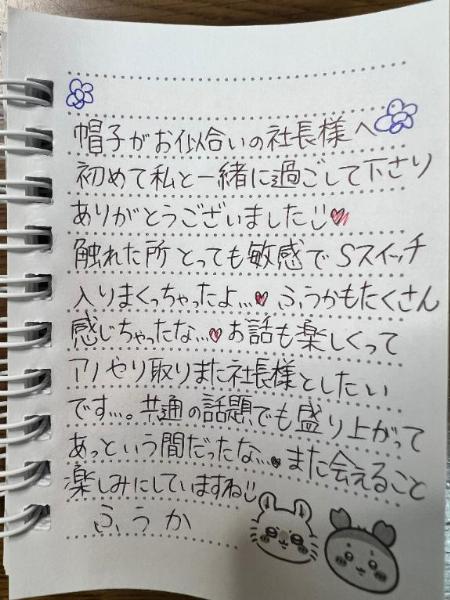 帽子がお似合いの社長様へ
初めて私と一緒に過ごして下さり
ありがとうございました♥
触れた所とっても敏感でSスイッチ
入りまくっちゃったよ...♥ ふうかもたくさん
感じちゃったな...♥ お話も楽しくって
アノやり取りまた社長様としたい
です...。共通の話題でも盛り上がって
あっという間だったな...♥また会えること
楽しみにしていますね
ふうか